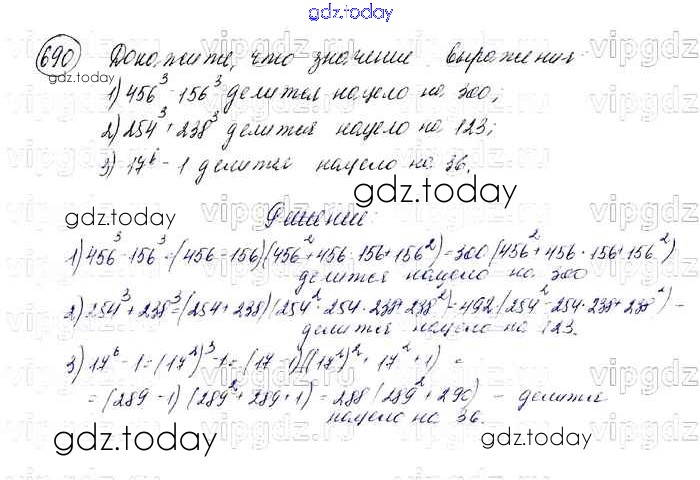 gdz.today
690 Докажите, что значение выражения
1) 456³ - 156³ делится нацело на 300;
2) 254³ + 238³ делится нацело на 123;
3) 17⁶ - 1 делится нацело на 36.
gdz.today
gdz.today
Решение:
1) 456³ - 156³ = (456 - 156)(456² + 456 · 156 + 156²) = 300 (456² + 456 · 156 + 156²)
делится нацело на 300
2) 254³ + 238³ = (254 + 238)(254² - 254 · 238 + 238²) = 492 (254² - 254 · 238 + 238²) -
делится нацело на 123.
3) 17⁶ - 1 = (17²)³ - 1 = (17 - 1)((17²)² + 17² + 1) =
= (289 - 1)(289² + 289 + 1) = 288 (289² + 290) - делится
нацело на 36.
gdz.today
gdz.today